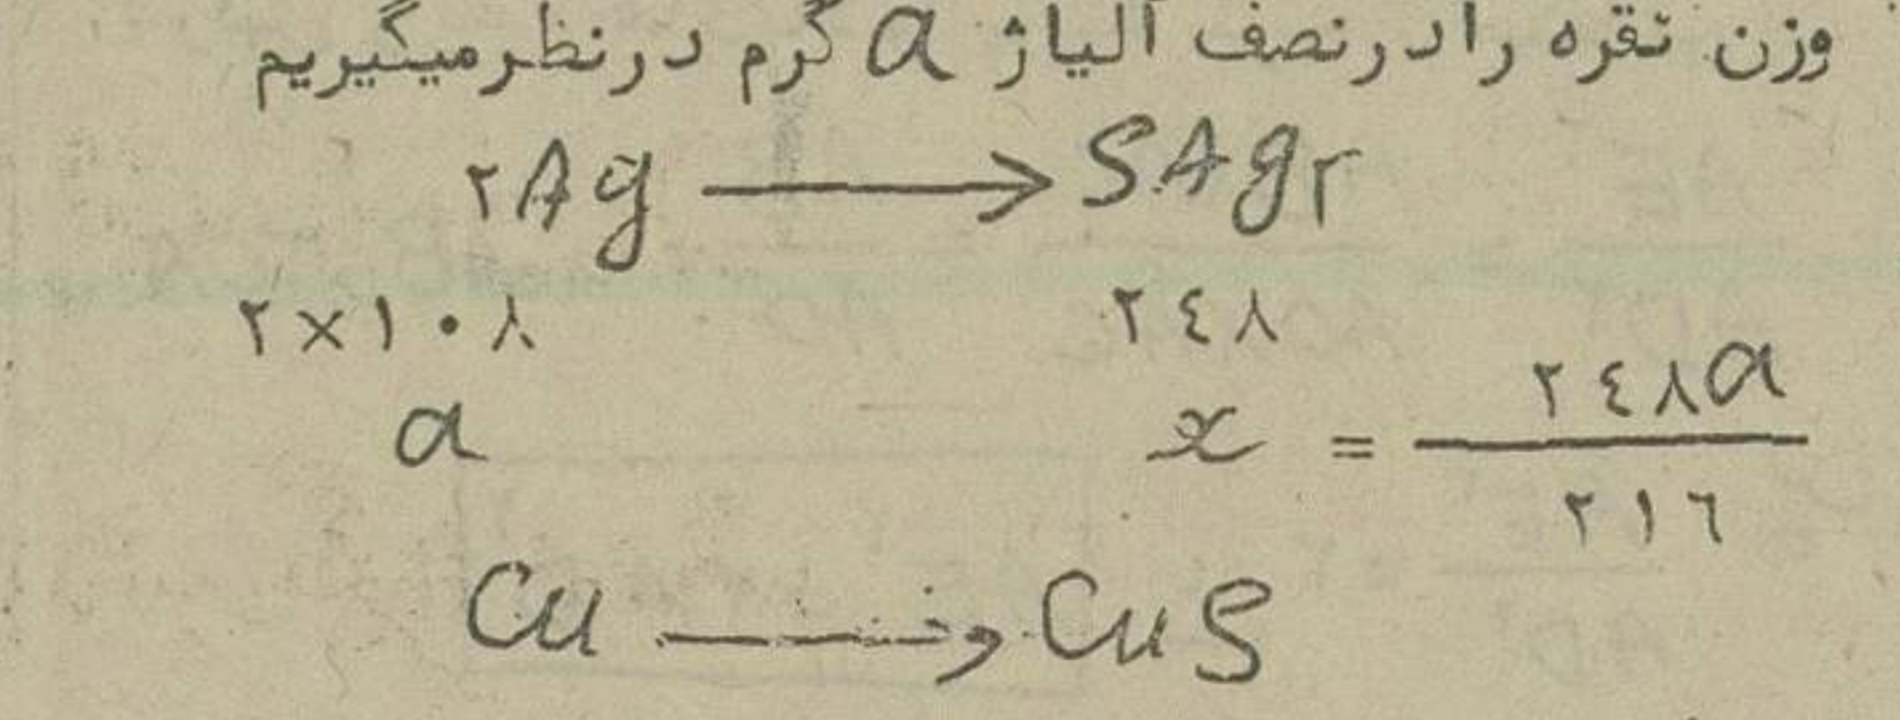 وزن نقره را در نصف آلیاژ a گرم در نظر میگیریم
۲Ag ⟶ SAg۲
۲×۱۰۸ ۲٤۸
a x = ۲٤۸a / ۲۱٦
Cu ⟶ CuS